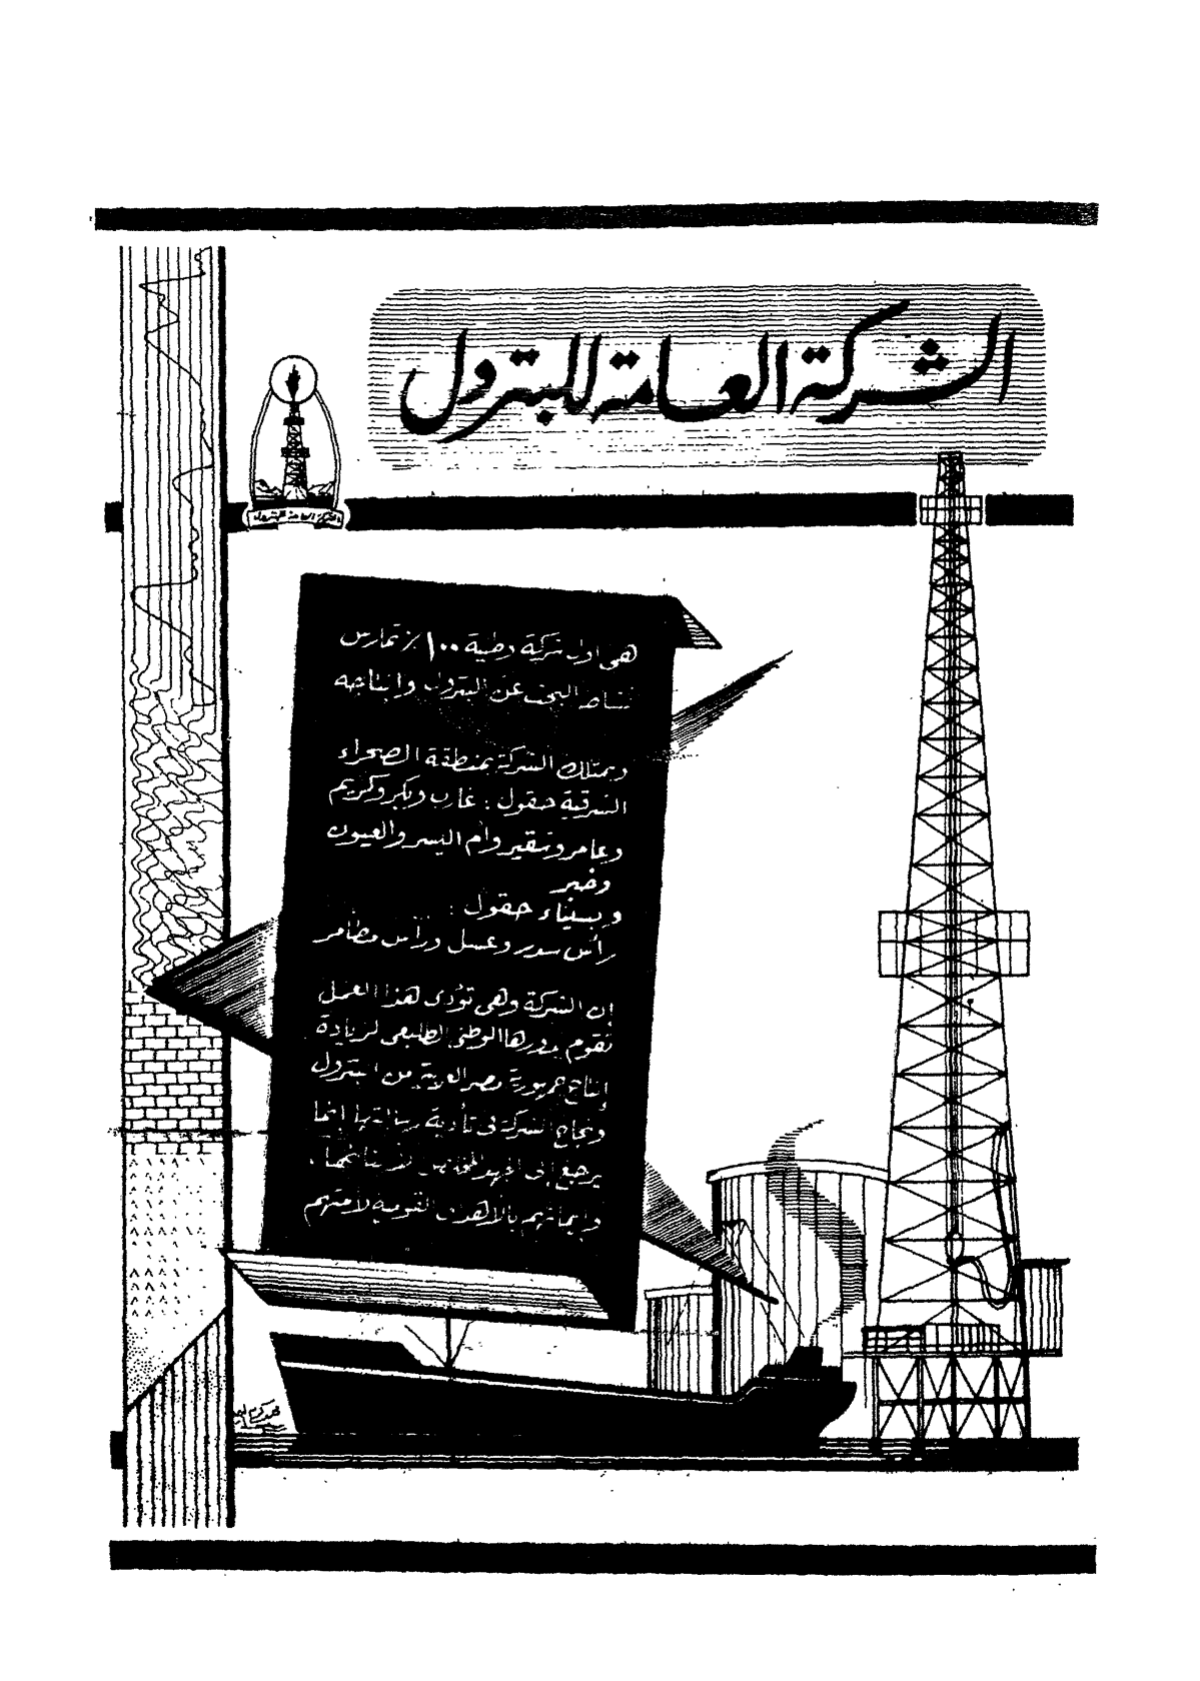 الشركة العامة للبترول
الشركة العامة للبترول
هى اول شركة وطنية ١٠٠٪ تمارس
نشاط البحث عن البترول وإنتاجه
وتمتلك الشركة بمنطقة الصحراء
الشرقية حقول : غارب وبكر وكريم
وعامر وشقير وأم اليسر والعيون
وخير
وبسيناء حقول :
رأس سدر وعسل ورأس مطامر
إن الشركة وهى تؤدى هذا العمل
تقوم بدورها الوطنى الطليعى لزيادة
إنتاج جمهورية مصر العربية من البترول
ونجاح الشركة فى تأدية رسالتها إنما
يرجع إلى الجهد المخلص لأبنائها
وإيمانهم بالأهداف القومية لأمتهم